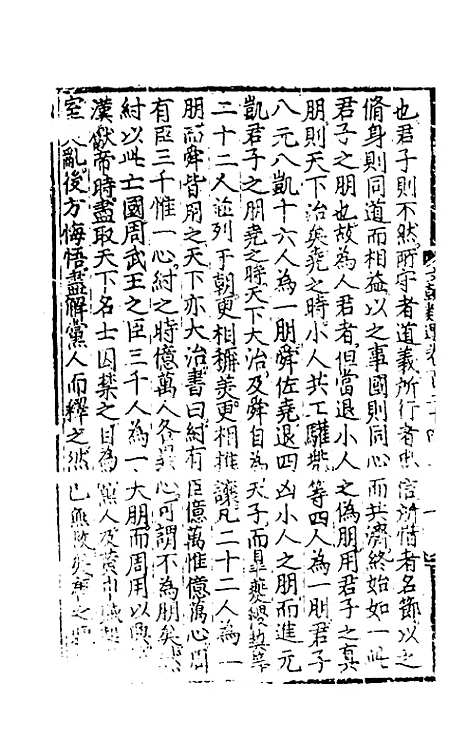 也君子則不然所守者道義所行者忠信所惜者名節以之
脩身則同道而相益以之事國則同心而共濟終始如一此
君子之朋也故為人君者但當退小人之偽朋用君子之真
朋則天下治矣堯之時小人共工驩兜等四人為一朋君子
八元八凱十六人為一朋舜佐堯退四凶小人之朋而進元
凱君子之朋堯之時天下大治及舜自為天子而皐夔稷契等
二十二人並列于朝更相稱美更相推讓凡二十二人為一
朋而舜皆用之天下亦大治書曰紂有臣億萬惟億萬心周
有臣三千惟一心紂之時億萬人各異心可謂不為朋矣
紂以此亡國周武王之臣三千人為一大朋而周用以興
漢獻帝時盡取天下名士囚禁之目為黨人及黃巾賊起
室大亂後方悔悟盡解黨人而釋之然已無救矣